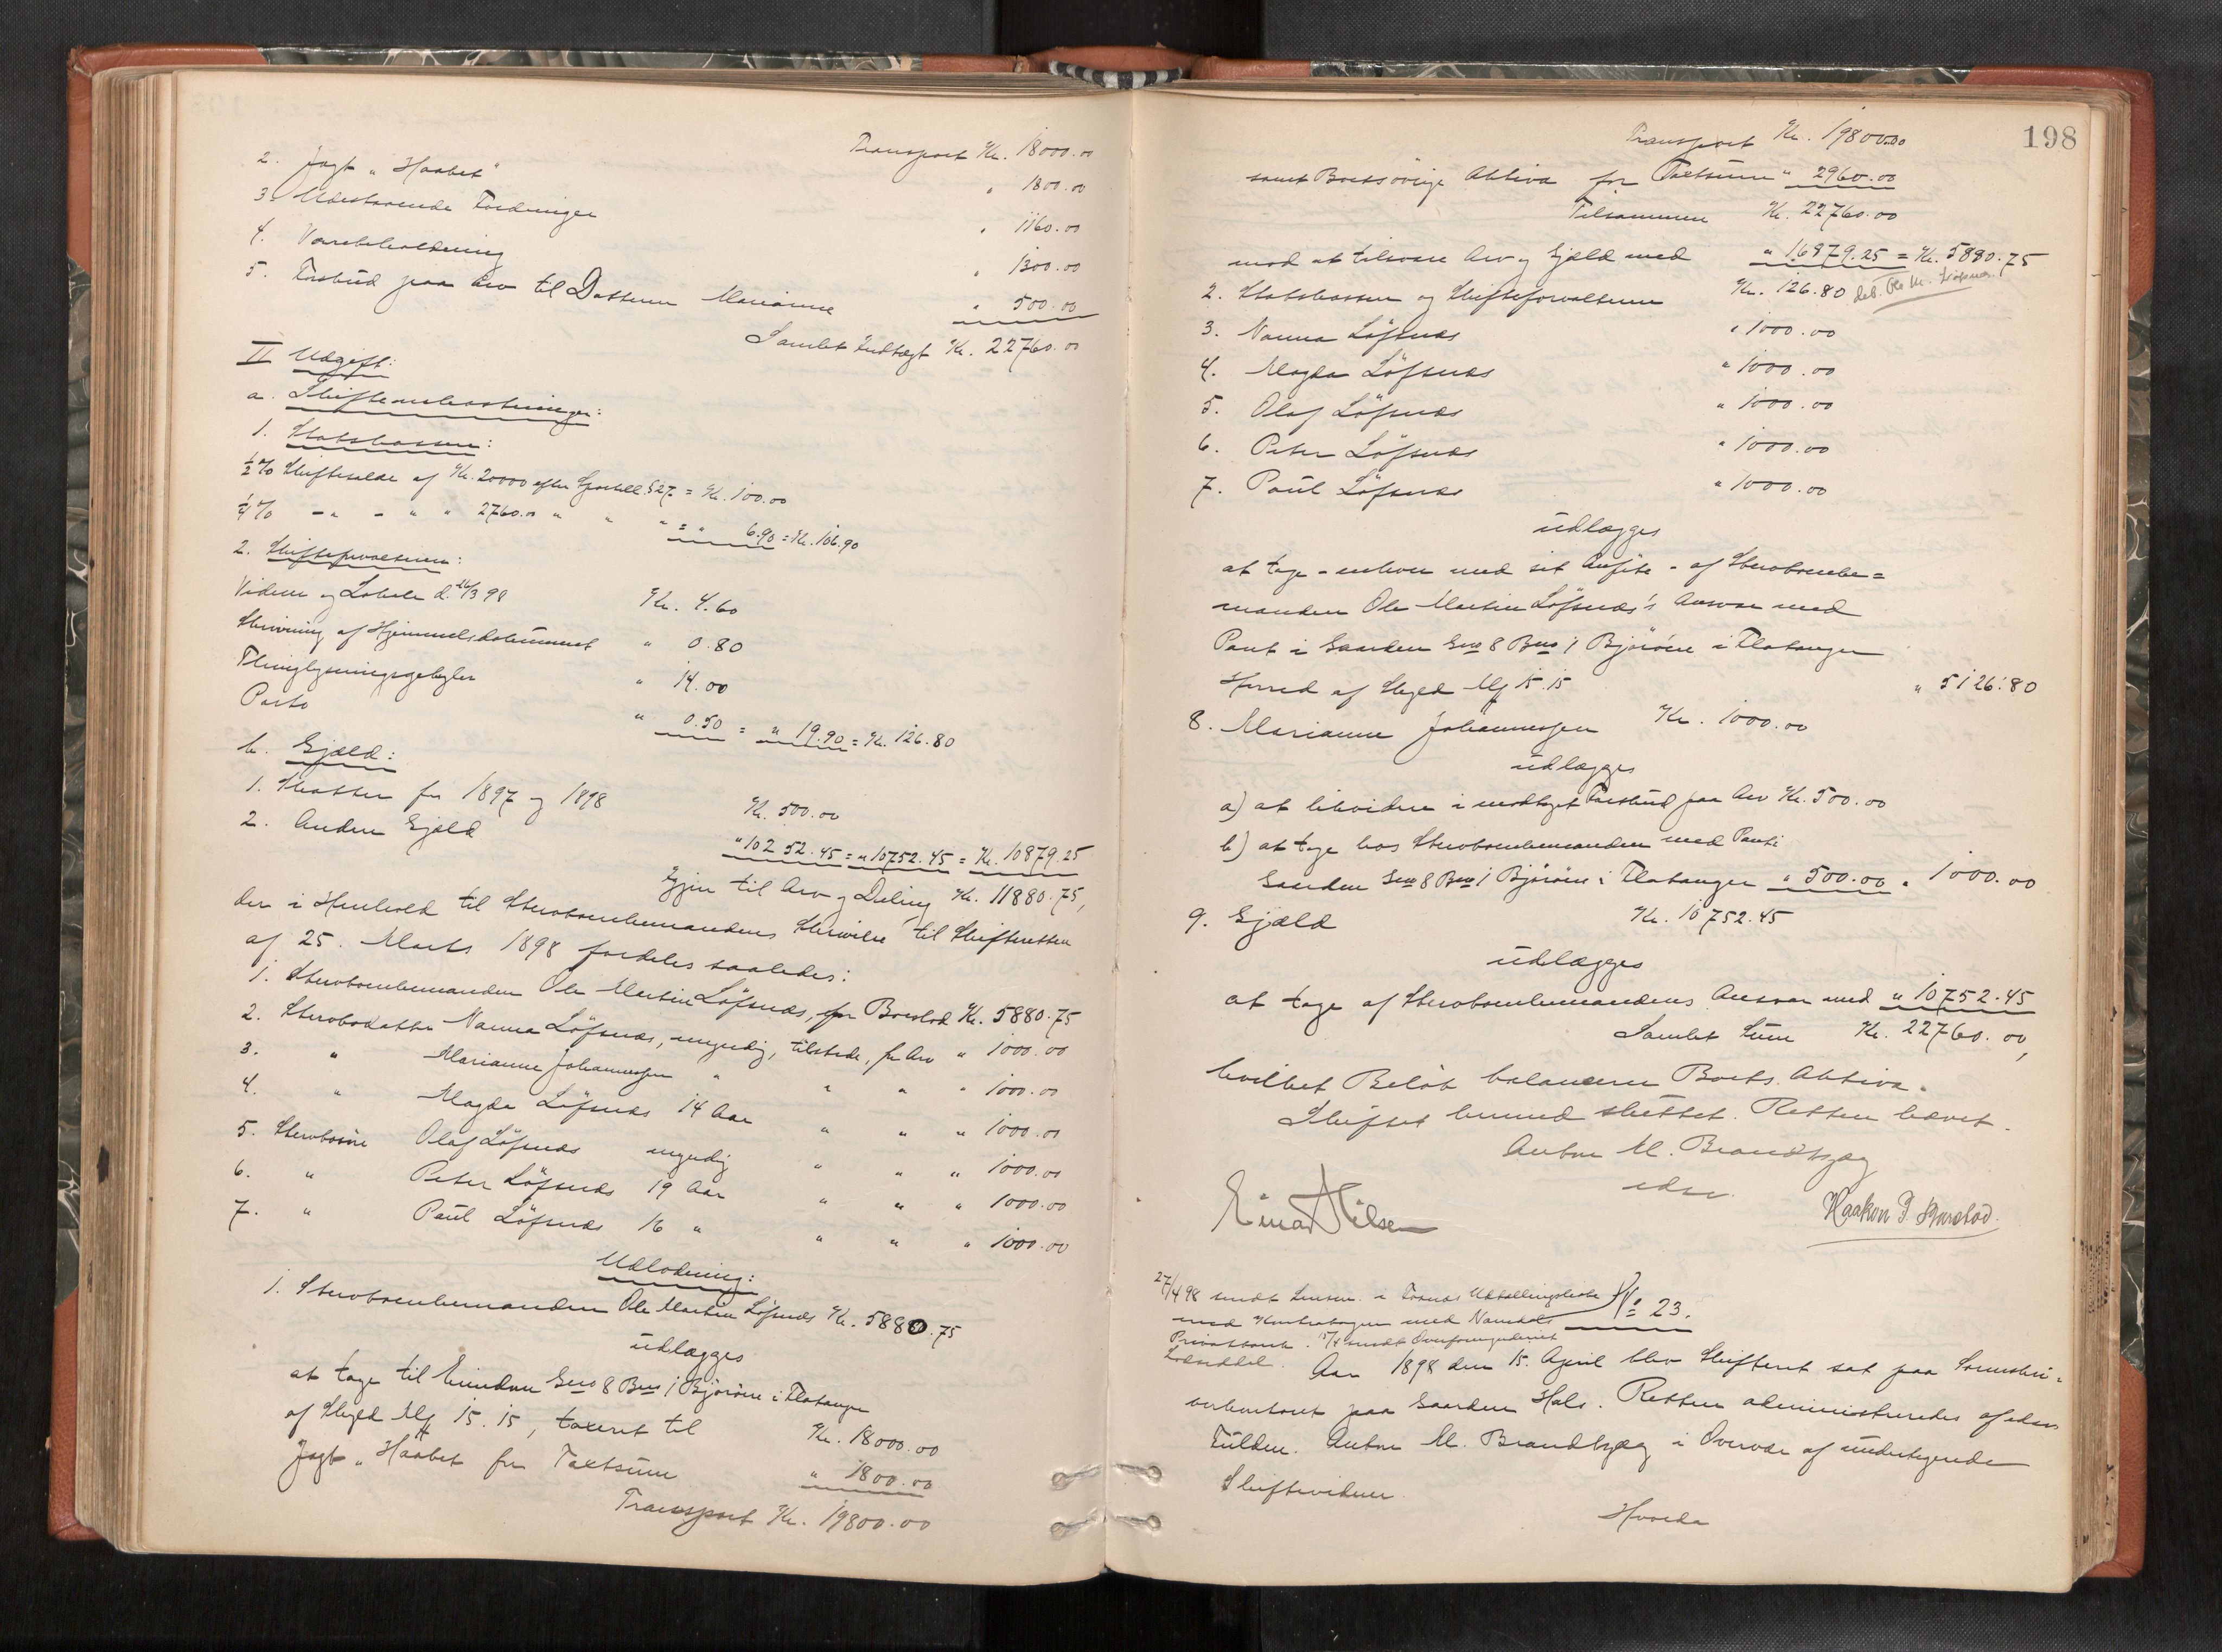 Transport Kr. 18000.00
2. Jagt "Haabet" " 1800.00
3. Udestaaende Fordringer " 1160.00
4. Varebeholdning " 1300.00
5. Forskud paa Arv til Datteren Marianne " 500.00
Samlet Indtægt Kr. 22760.00
II Udgift:
a. Skifteomkostninger:
1. Statskassen:
½ % Skiftesalær af Kr. 20000 efter Sportell. §27 = Kr. 100.00
¼ % - " - " " 2760.00 " " " = " 6.90 = Kr. 106.90
2. Skifteforvalteren:
Vidner og Lokale d. 26/3 98 Kr. 4.60
Skrivning af Hjemmelsdokument " 0.80
Thinglysningsgebyhr " 14.00
Porto " 0.50 = " 19.90 = Kr. 126.80
b. Gjæld:
1. Skatter for 1897 og 1898 Kr. 500.00
2. Anden Gjæld " 10252.45 = " 10752.45 = Kr. 10879.25
Igjen til Arv og Deling Kr. 11880.75,
der i Henhold til Stervboenkemandens Skrivelse til Skifteretten
af 25. Marts 1898 fordeles saaledes:
1. Stervboenkemanden Ole Martin Löfsnæs, for Boeslod Kr. 5880.75
2. Stervbodatter Nanna Löfsnæs, myndig, tilstede, for Arv " 1000.00
3. " Marianne Johannessen " " " " 1000.00
4. " Magda Löfsnæs 14 Aar " " " 1000.00
5. Stervbosön Olaf Löfsnæs myndig " " " 1000.00
6. " Peter Löfsnæs 19 Aar " " " 1000.00
7. " Paul Löfsnæs 16 " " " " 1000.00
Udlodning:
1. Stervboenkemanden Ole Martin Löfsnæs Kr. 5880.75
udlægges
at tage til Eiendom Gno 8 Bno 1 Björöen i Flatanger
af Skyld Mk 15.15, taxeret til Kr. 18000.00
Jagt "Haabet for Taxtsum " 1800.00
Transport Kr. 19800.00
198
Transport Kr. 19800.00
samt Boets övrige Aktiva for Taxtsum " 2960.00
Tilsammen Kr. 22760.00
mod at tilsvare Arv og Gjæld med " 16879.25 = Kr. 5880.75
2. Statskassen og Skifteforvalteren Kr. 126.80
3. Nanna Löfsnæs " 1000.00
4. Magda Löfsnæs " 1000.00
5. Olaf Löfsnæs " 1000.00
6. Peter Löfsnæs " 1000.00
7. Paul Löfsnæs " 1000.00
udlægges
at tage - enhver med sit Anförte - af Stervboenke=
manden Ole Martin Löfsnæs's Ansvar med
Pant i Gaarden Gno 8 Bno 1 Björöen i Flatanger
Herred af Skyld Mk 15.15 " 5126.80
8. Marianne Johannessen Kr. 1000.00
udlægges
a) at likvidere i modtaget Forskud paa Arv Kr. 500.00
b) at tage hos Stervboenkemanden med Pant i
Gaarden Gno 8 Bno 1 Björöen i Flatanger " 500.00 " 1000.00
9. Gjæld Kr. 10752.45
udlægges
at tage af Stervboenkemandens Ansvar med " 10752.45
Samlet Sum Kr. 22760.00,
hvilket Belöb balancerer Boets Aktiva.
Skiftet hermed sluttet. Retten hævet.
Anton M. Brandtzæg
edsv.
Einar Nilsen
27/4 98 sendt
No 23.
med Kontrabogen med Namdals
Privatbank. 15/4 sendt Overformynderiet
Aar 1898 den 15. April blev Skifteret sat paa Sorenskri=
verkontoret paa Gaarden Hals. Retten administreredes af edsv.
Fuldm. Anton M. Brandtzæg i Overvær af undertegnede
Skiftevidner.
Hvorda